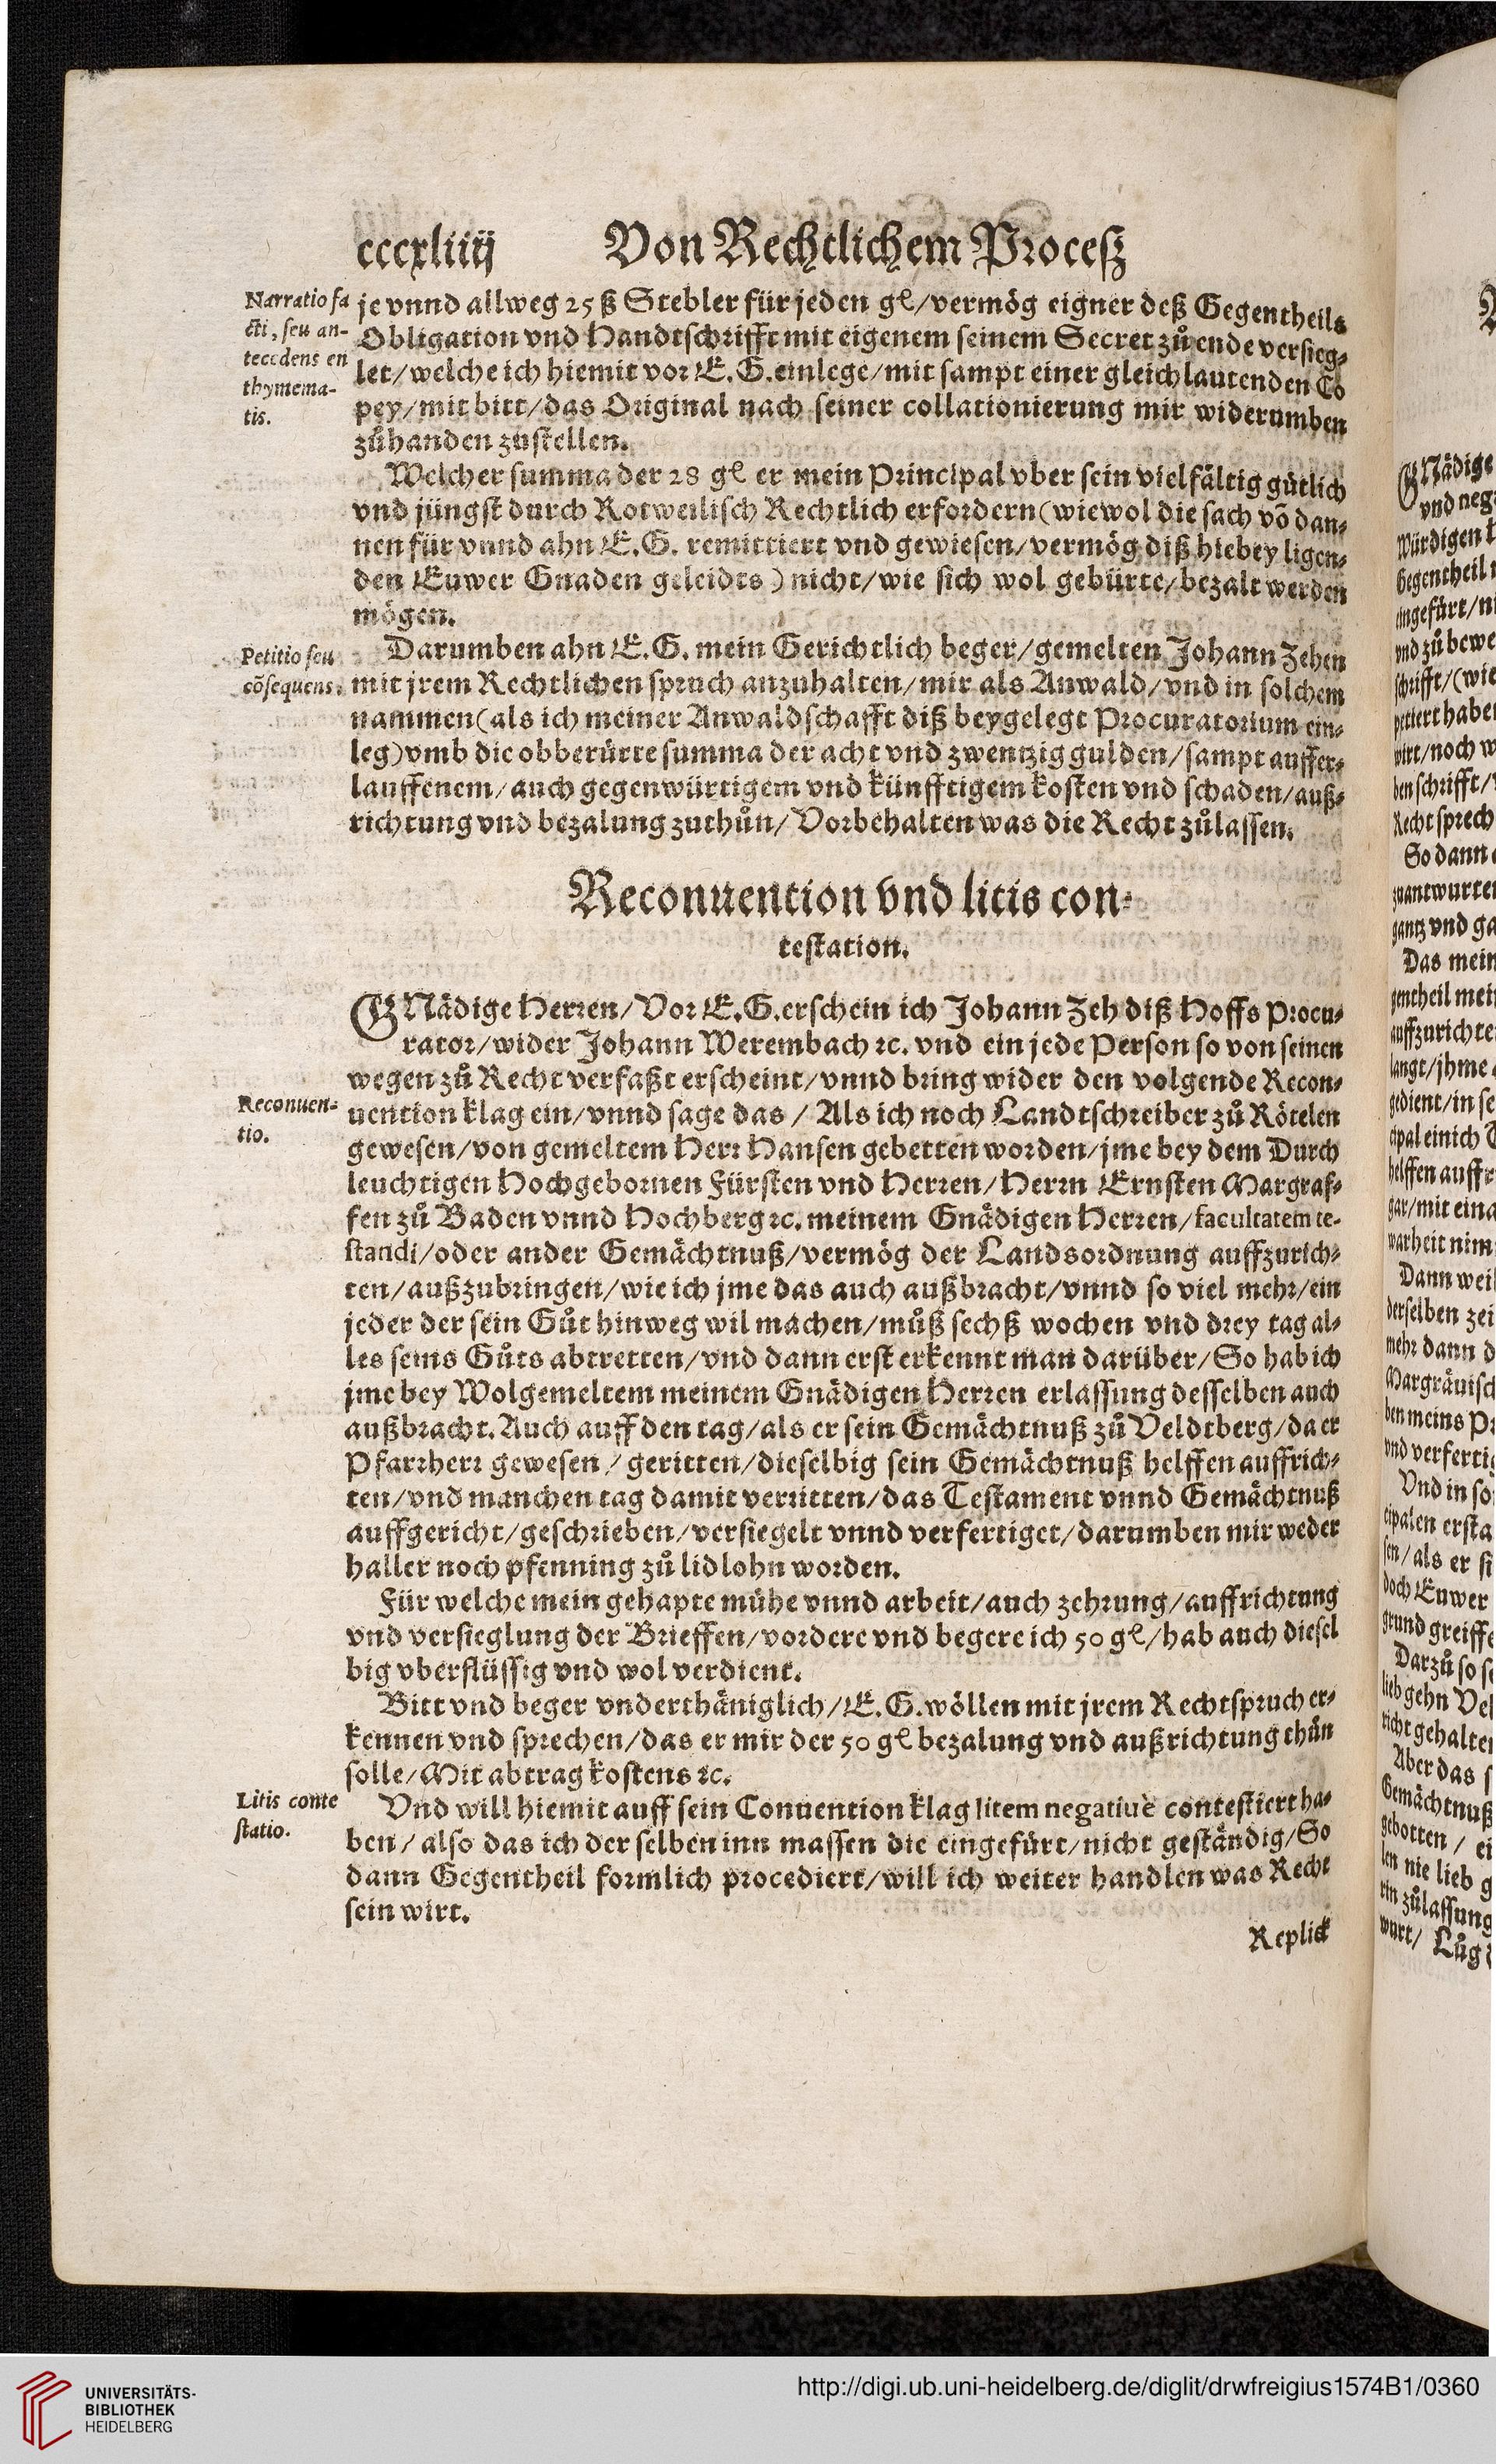 cccxliiij Von Rechtlichem Proceß
Narratio fa
cti, seu an-
tecedens en
thymema-
tis.
je vnnd allweg 25 ß Stebler für jeden gl/vermög eigner deß Gegentheils
Obligation vnd Handtschrifft mit eigenem seinem Secret zů ende versieg-
let/welche ich hiemit vor E.G. einlege/mit sampt einer gleich lautenden Co
pey/mit bitt/das Original nach seiner collationierung mir widerumben
zůhanden zustellen.
Welcher summa der 28 gl er mein Principal vber sein vielfältig gütlich
vnd jüngst durch Rotweilisch Rechtlich erfordern (wiewol die sach võ dan-
nen für vnnd ahn E.G. remittiert vnd gewiesen/vermög diß hiebey ligen-
den Euwer Gnaden geleidts) nicht/wie sich wol gebürte/bezalt werden
mögen.
Petitio seu
cõsequens.
Darumben ahn E.G. mein Gerichtlich beger/gemelten Johann Zehen
mit jrem Rechtlichen spruch anzuhalten/mir als Anwald/vnd in solchem
nammen (als ich meiner Anwaldschafft diß beygelegt Procuratorium ein-
leg) vmb die obberürte summa der acht vnd zwentzig gulden/sampt auffer-
lauffenem/auch gegenwürtigem vnd künfftigem kosten vnd schaden/auß-
richtung vnd bezalung zuthůn/Vorbehalten was die Recht zůlassen.
Reconuention vnd litis con-
testation.
GNädige Herren/Vor E.G. erschein ich Johann Zeh diß Hoffs Procu-
rator/wider Johann Werembach ꝛc. vnd ein jede Person so von seinen
wegen zů Recht verfaßt erscheint/vnnd bring wider den volgende Recon-
Reconuen-
tio.
uention klag ein/vnnd sage das/Als ich noch Landtschreiber zů Rötelen
gewesen/von gemeltem Herr Hansen gebetten worden/jme bey dem Durch
leuchtigen Hochgebornen Fürsten vnd Herren/Herrn Ernsten Margraf-
fen zů Baden vnnd Hochberg ꝛc. meinem Gnädigen Herren/facultatem te-
standi/oder ander Gemächtnuß/vermög der Landsordnung auffzurich-
ten/außzubringen/wie ich jme das auch außbracht/vnnd so viel mehr/ein
jeder der sein Gůt hinweg wil machen/můß sechß wochen vnd drey tag al-
les seins Gůts abtretten/vnd dann erst erkennt man darüber/So hab ich
jme bey Wolgemeltem meinem Gnädigen Herren erlassung desselben auch
außbracht. Auch auff den tag/als er sein Gemächtnuß zů Veldtberg/da er
Pfarrherr gewesen/geritten/dieselbig sein Gemächtnuß helffen auffrich-
ten/vnd manchen tag damit verritten/das Testament vnnd Gemächtnuß
auffgericht/geschrieben/versiegelt vnnd verfertiget/darumben mir weder
haller noch pfenning zů lidlohn worden.
Für welche mein gehapte mühe vnnd arbeit/auch zehrung/auffrichtung
vnd versieglung der Brieffen/vordere vnd begere ich 50 gl/hab auch diesel
big vberflüssig vnd wol verdient.
Bitt vnd beger vnderthäniglich/E.G. wöllen mit jrem Rechtspruch er-
kennen vnd sprechen/das er mir der 50 gl bezalung vnd außrichtung thůn
solle/Mit abtrag kostens ꝛc.
Litis conte
statio.
Vnd will hiemit auff sein Conuention klag litem negatiuè contestiert ha-
ben/also das ich derselben inn massen die eingefürt/nicht geständig/So
dann Gegentheil formlich procediert/will ich weiter handlen was Recht
sein wirt.
Replick
GNädige
vnd neg
würdigen
Gegentheil
eingefürt/ni
vnd zů bewe
schrifft/(wie
petiert habe
wirt/noch w
ben schrifft/
Recht sprech
So dann
zuantwurte
gantz vnd ga
Das mein
gentheil mei
auffzurichte
langt/jhme
gedient/in se
cipal einich
helffen auffr
gar/mit eina
warheit nim
Dann weil
derselben zei
mehr dann d
Margräuisch
ben meins Pr
vnd verfertig
Vnd in so
cipalen ersta
sen/als er si
doch Euwer
grund greiffe
Darzů so se
lieb gehn Vel
richt gehalte
Aber das s
Gemächtnuß
gebotten/ei
len nie lieb g
rin zůlassung
wurt/Lůg
UNIVERSITÄTS-
BIBLIOTHEK
HEIDELBERG
http://digi.ub.uni-heidelberg.de/diglit/drwfreigius1574B1/0360